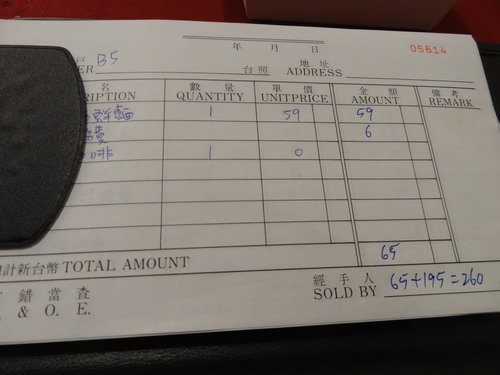 年 月 日
05614
戶 B5
ER
台照
地址
ADDRESS
名 數量 單價 金額 備考
RIPTION QUANTITY UNITPRICE AMOUNT REMARK
鮮麵 1 59 59
6
啡 1 0
計新台幣 TOTAL AMOUNT 65
錯當查
& O. E.
經手人
SOLD BY 65+195=260